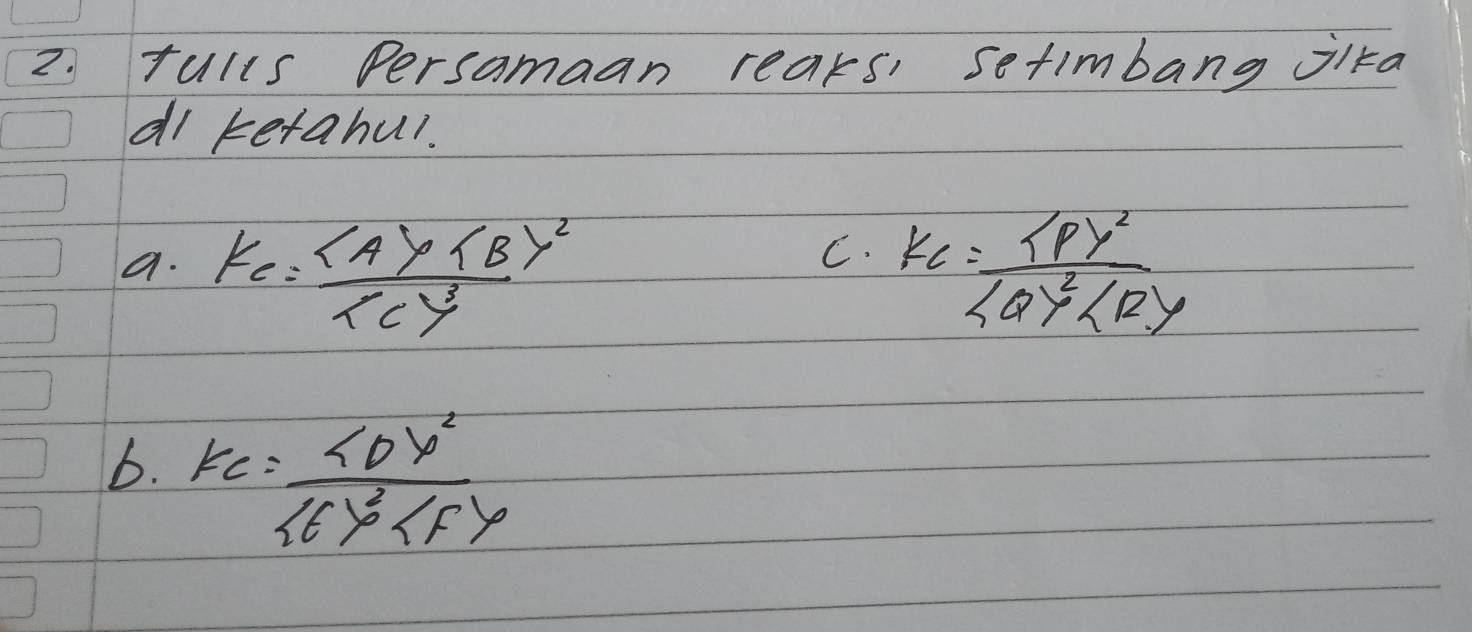 2. Tulis Persamaan reaksi setimbang jika
di ketahui.
a. Kc = <A> <B>²
<C>³
c. Kc = <P>²
<Q>² <R>
b. Kc = <D>²
<E>² <F>